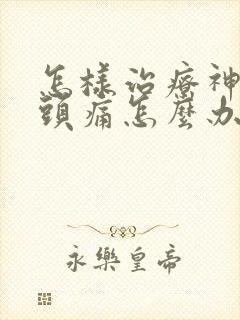 怎樣治療神
頭痛怎麼办
永樂皇帝